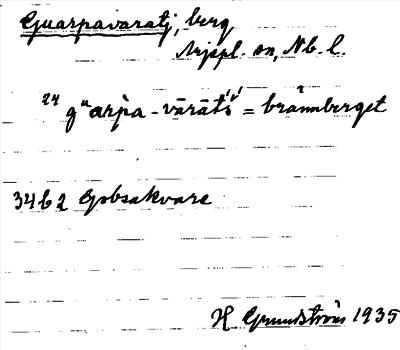 Guarpavaratj, berg
Arjepl. sn, Nb. l.
24 gᵘarpa-vārātś = brännberget
34 b 2 Gobsakvare
H Grundström 1935